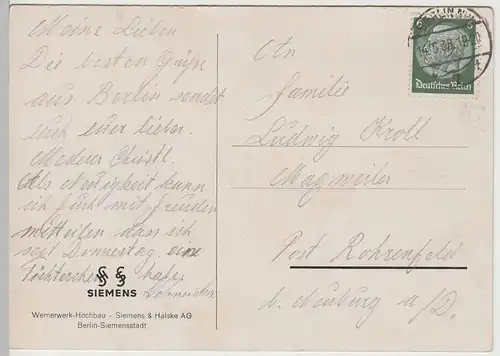 Meine Lieben
Die besten Grüße
aus Berlin sendet
euch euer lieber
Christl.
Als Neuigkeit kann
ich Euch mit Freuden
mitteilen dass ich
seit Donnerstag eine
Töchterchen habe.
SIEMENS
Wernerwerk-Hochbau · Siemens & Halske AG
Berlin-Siemensstadt
BERLIN
6 6
Deutsches Reich
An
Familie
Ludwig Kroll
Magweiler
Post Rohrenfeld
b. Neuburg a/D.